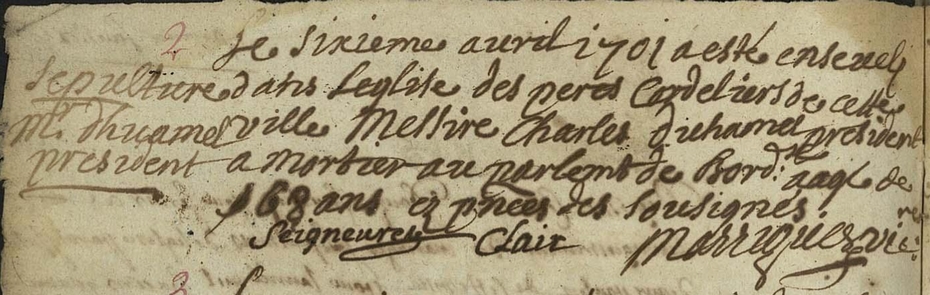 2 Le sixieme avril 1701 a esté enseveli
sepulture dans leglise des peres Cordeliers de cette
mr. dhuamel ville Messire Charles duhamel president
president a mortier au parlemt de Bord: aagé de
68 ans ez pñces des sousignes
Seigneuret Clair Marriquez vic:re
3